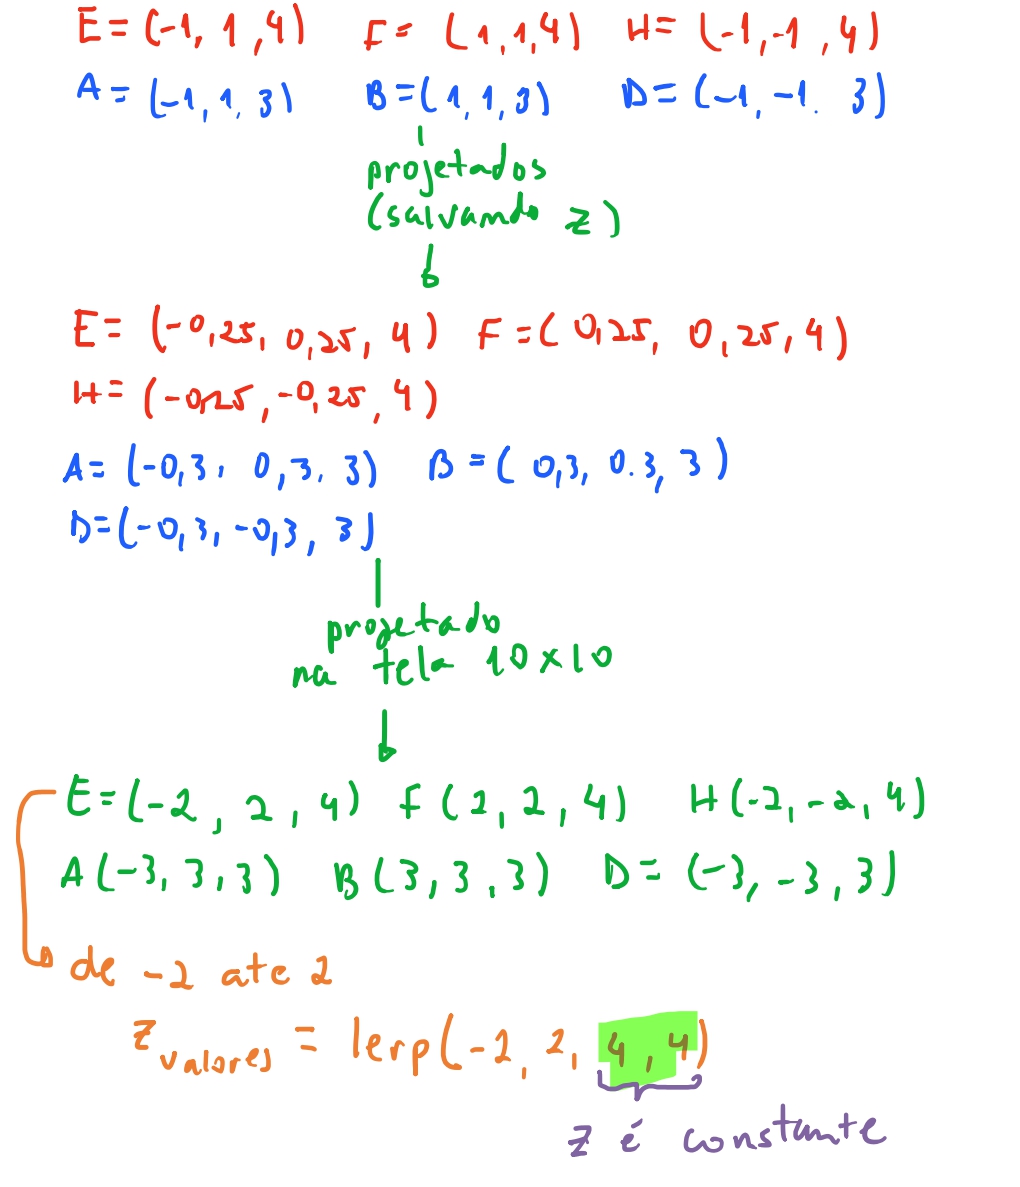 E = (-1, 1, 4) F = (1, 1, 4) H = (-1, -1, 4)
A = (-1, 1, 3) B = (1, 1, 3) D = (-1, -1. 3)
projetados
(salvando z)
E = (-0,25, 0,25, 4) F = (0,25, 0,25, 4)
H = (-0,25, -0,25, 4)
A = (-0,3, 0,3, 3) B = (0,3, 0.3, 3)
D = (-0,3, -0,3, 3)
projetado
na tela 10x10
E = (-2, 2, 4) F (2, 2, 4) H (-2, -2, 4)
A (-3, 3, 3) B (3, 3, 3) D = (-3, -3, 3)
de -2 ate 2
z valores = lerp(-2, 2, 4, 4)
z é constante